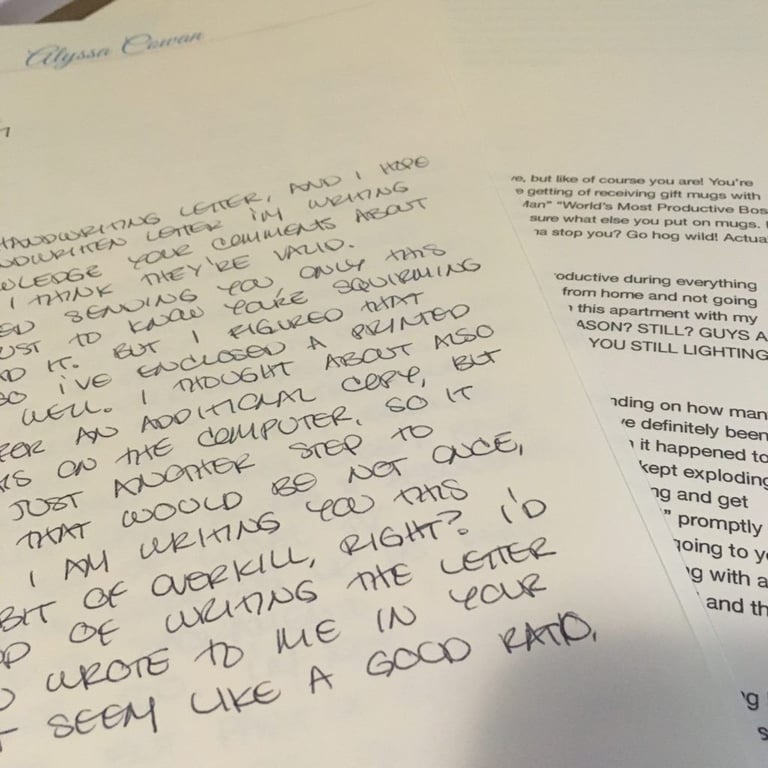 Alyssa Cowan
7
HANDWRITING LETTER, AND I HOPE
NDWRITTEN LETTER I'M WRITING
WLEDGE YOUR COMMENTS ABOUT
I THINK THEY'RE VALID.
ED SENDING YOU ONLY THIS
UST TO KNOW YOU'RE SQUIRMING
D IT. BUT I FIGURED THAT
SO I'VE ENCLOSED A PRINTED
WELL. I THOUGHT ABOUT ALSO
FOR AN ADDITIONAL COPY, BUT
KS ON THE COMPUTER. SO IT
JUST ANOTHER STEP TO
THAT WOULD BE NOT ONCE,
I AM WRITING YOU THIS
BIT OF OVERKILL, RIGHT? I'D
OF WRITING THE LETTER
WROTE TO ME IN YOUR
T SEEM LIKE A GOOD RATIO.
ve, but like of course you are! You're
e getting of receiving gift mugs with
Man" "World's Most Productive Bos
sure what else you put on mugs. I
na stop you? Go hog wild! Actua
oductive during everything
from home and not going
this apartment with my
ASON? STILL? GUYS A
YOU STILL LIGHTING
nding on how man
ve definitely been
it happened to
kept exploding
ng and get
" promptly
going to yo
ng with a
and th